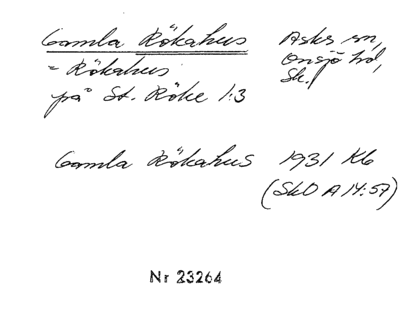 Gamla Rökahus
Asks sn,
Onsjö hd,
Sk.
= Rökahus
på St. Röke 1:3
Gamla Rökahus 1931 Kb
(SkO A 14:57)
Nr 23264